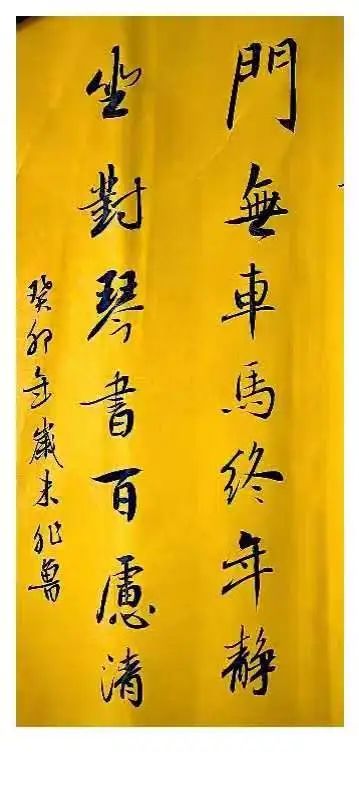 門無車馬終年靜
坐對琴書百慮清
癸卯年歲末非魯